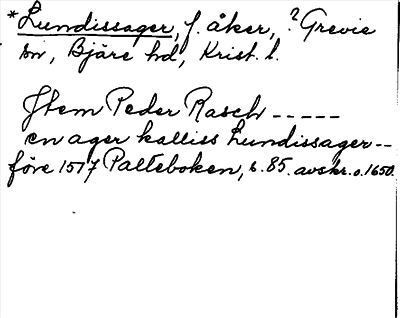 *Lundissager, f. åker, ? Grevie
sn, Bjäre hd, Krist. l.
Jtem Peder Rasch -----
en ager kalliss Lundissager --
före 1517 Palteboken, s. 85. avskr. o. 1650.